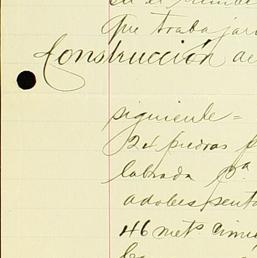 en el
que trabajar
Construcción de
siguiente =
24 piedras p
labrada pª
adobes
46 metˢ cimi